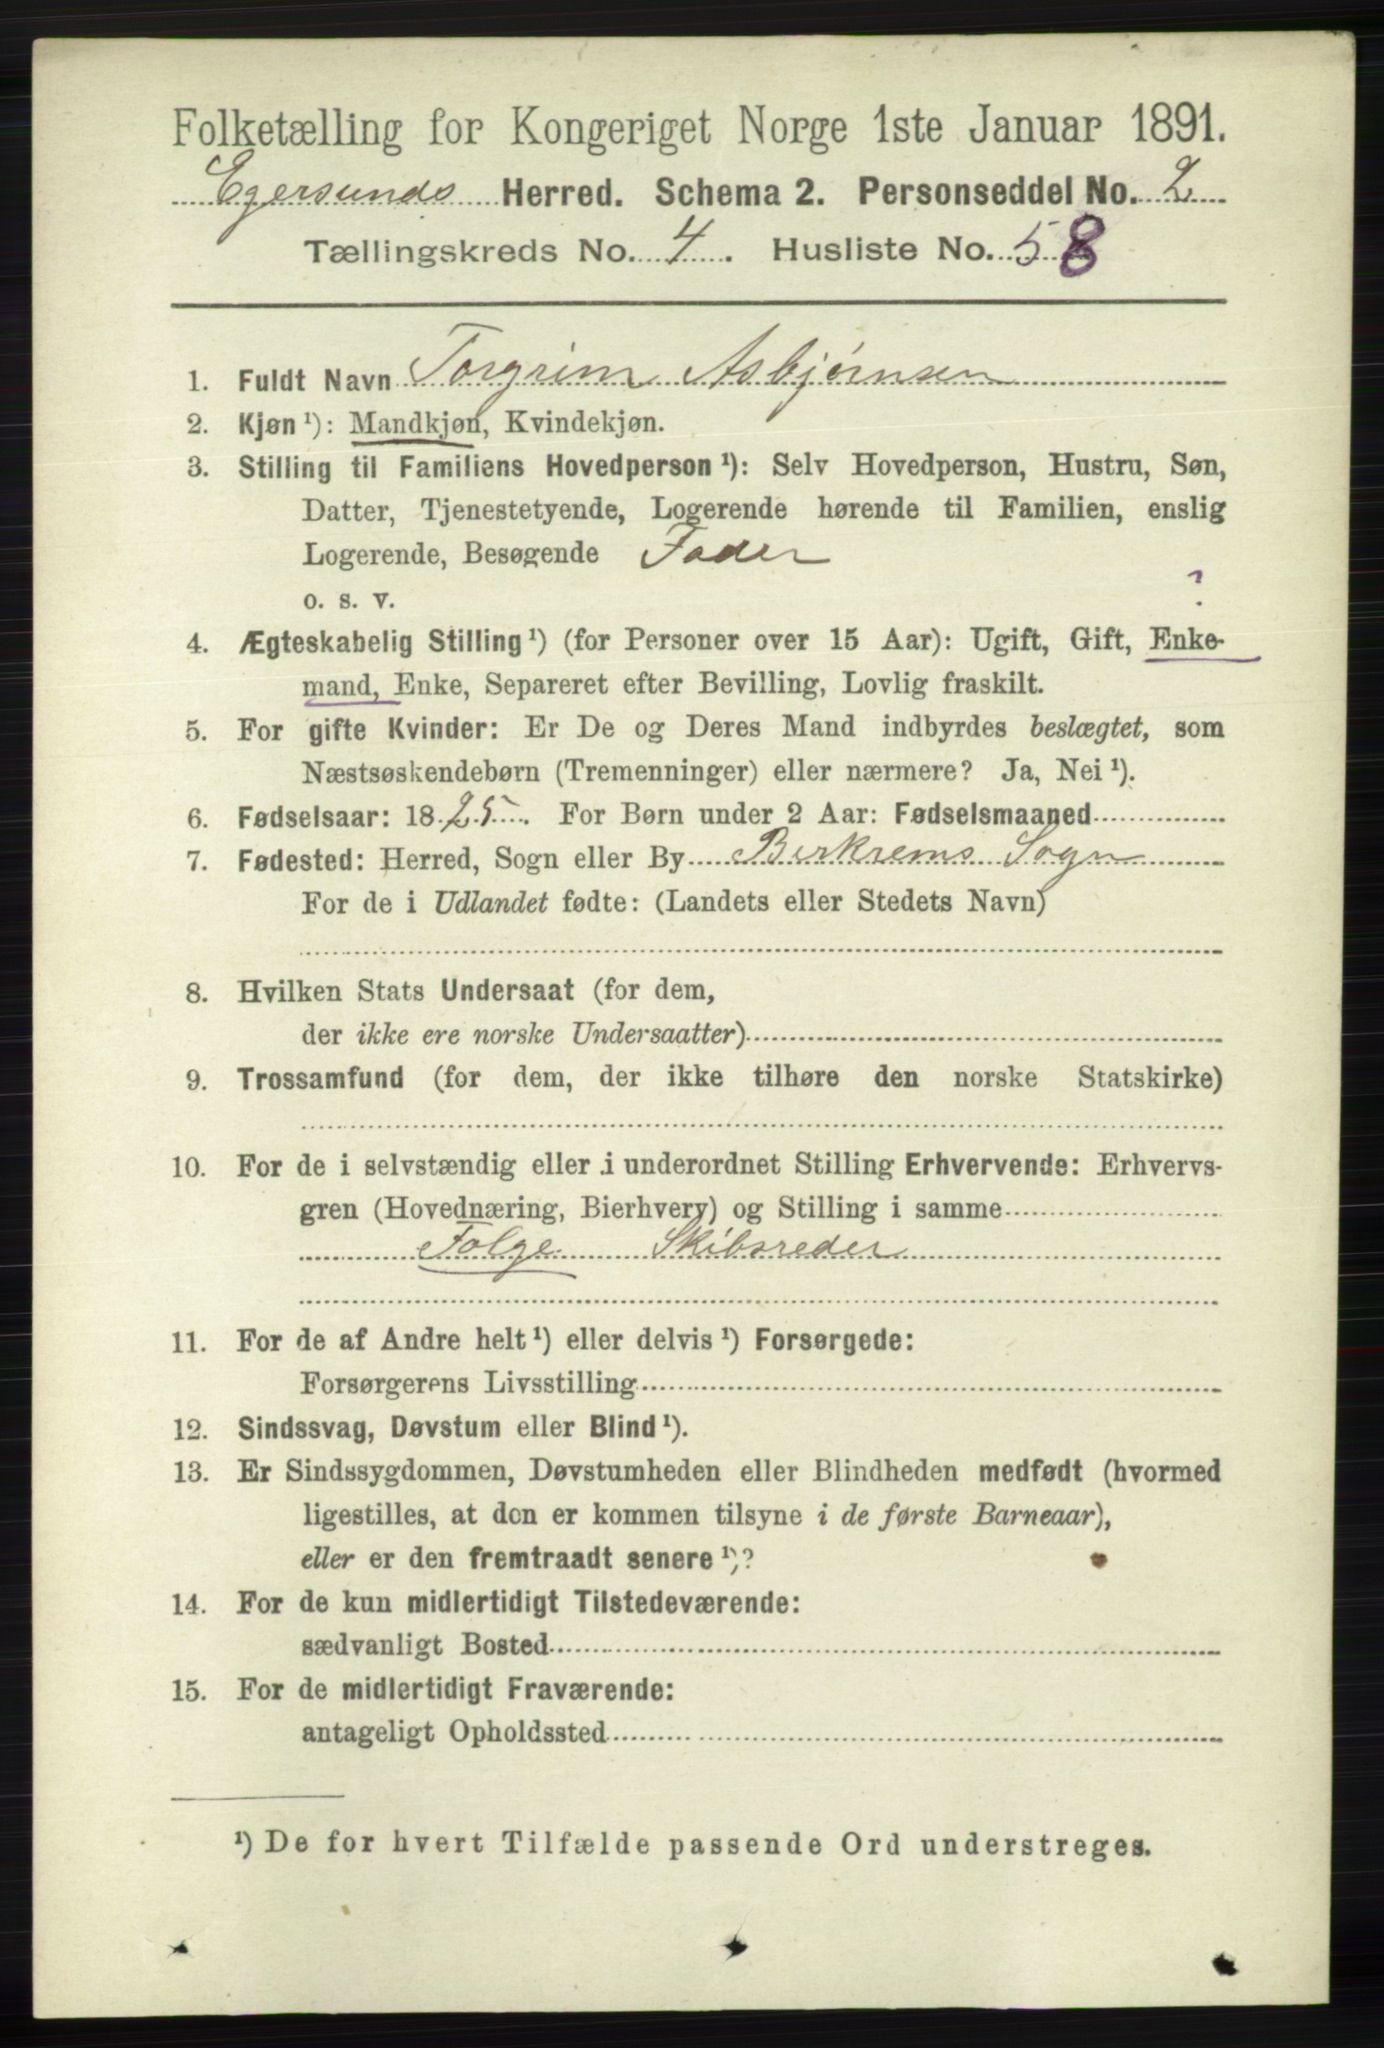 Folketælling for Kongeriget Norge 1ste Januar 1891.
Egersunds Herred. Schema 2. Personseddel No. 2
Tællingskreds No. 4. Husliste No. 58
1. Fuldt Navn Torgrim Asbjørnsen
2. Kjøn ¹): Mandkjøn, Kvindekjøn.
3. Stilling til Familiens Hovedperson ¹): Selv Hovedperson, Hustru, Søn,
Datter, Tjenestetyende, Logerende hørende til Familien, enslig
Logerende, Besøgende Fader
o. s. v. ?
4. Ægteskabelig Stilling ¹) (for Personer over 15 Aar): Ugift, Gift, Enke-
mand, Enke, Separeret efter Bevilling, Lovlig fraskilt.
5. For gifte Kvinder: Er De og Deres Mand indbyrdes beslægtet, som
Næstsøskendebørn (Tremenninger) eller nærmere? Ja, Nei ¹).
6. Fødselsaar: 1825. For Børn under 2 Aar: Fødselsmaaned
7. Fødested: Herred, Sogn eller By Birkrems Sogn
For de i Udlandet fødte: (Landets eller Stedets Navn)
8. Hvilken Stats Undersaat (for dem,
der ikke ere norske Undersaatter)
9. Trossamfund (for dem, der ikke tilhøre den norske Statskirke)
10. For de i selvstændig eller i underordnet Stilling Erhvervende: Erhvervs-
gren (Hovednæring, Bierhverv) og Stilling i samme
Folge Skibsreder
11. For de af Andre helt ¹) eller delvis ¹) Forsørgede:
Forsørgerens Livsstilling
12. Sindssvag, Døvstum eller Blind ¹).
13. Er Sindssygdommen, Døvstumheden eller Blindheden medfødt (hvormed
ligestilles, at den er kommen tilsyne i de første Barneaar),
eller er den fremtraadt senere ¹)?
14. For de kun midlertidigt Tilstedeværende:
sædvanligt Bosted
15. For de midlertidigt Fraværende:
antageligt Opholdssted
¹) De for hvert Tilfælde passende Ord understreges.